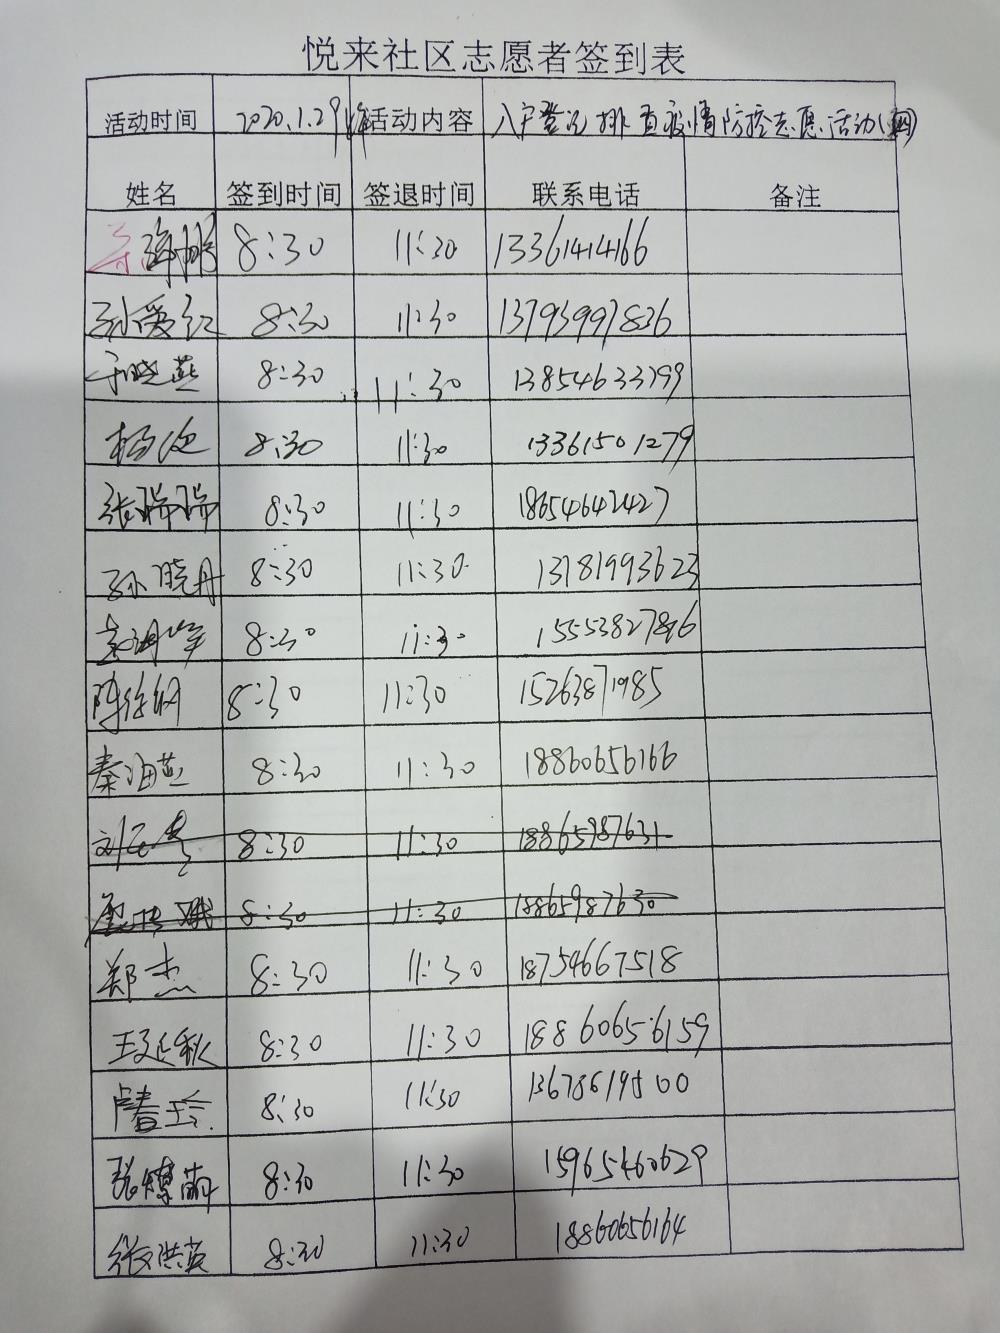 悦来社区志愿者签到表
活动时间 2020.1.29 活动内容 入户登记排查疫情防控志愿活动(四)
姓名 签到时间 签退时间 联系电话 备注
8:30 11:30 13361414166
孙爱红 8:30 11:30 13793997836
于晓燕 8:30 11:30 13854633799
杨俊 8:30 11:30 13361501279
张瑞瑞 8:30 11:30 18654642427
孙晓丹 8:30 11:30 13781993623
8:30 11:30 15553827896
陈徐帆 8:30 11:30 15263871985
秦海燕 8:30 11:30 18860656166
8:30 11:30 18865987631
8:30 11:30 18865987630
郑杰 8:30 11:30 18754667518
王延秋 8:30 11:30 18860656159
卢春云 8:30 11:30 13678619500
8:30 11:30 15965460629
张洪英 8:30 11:30 18860656164